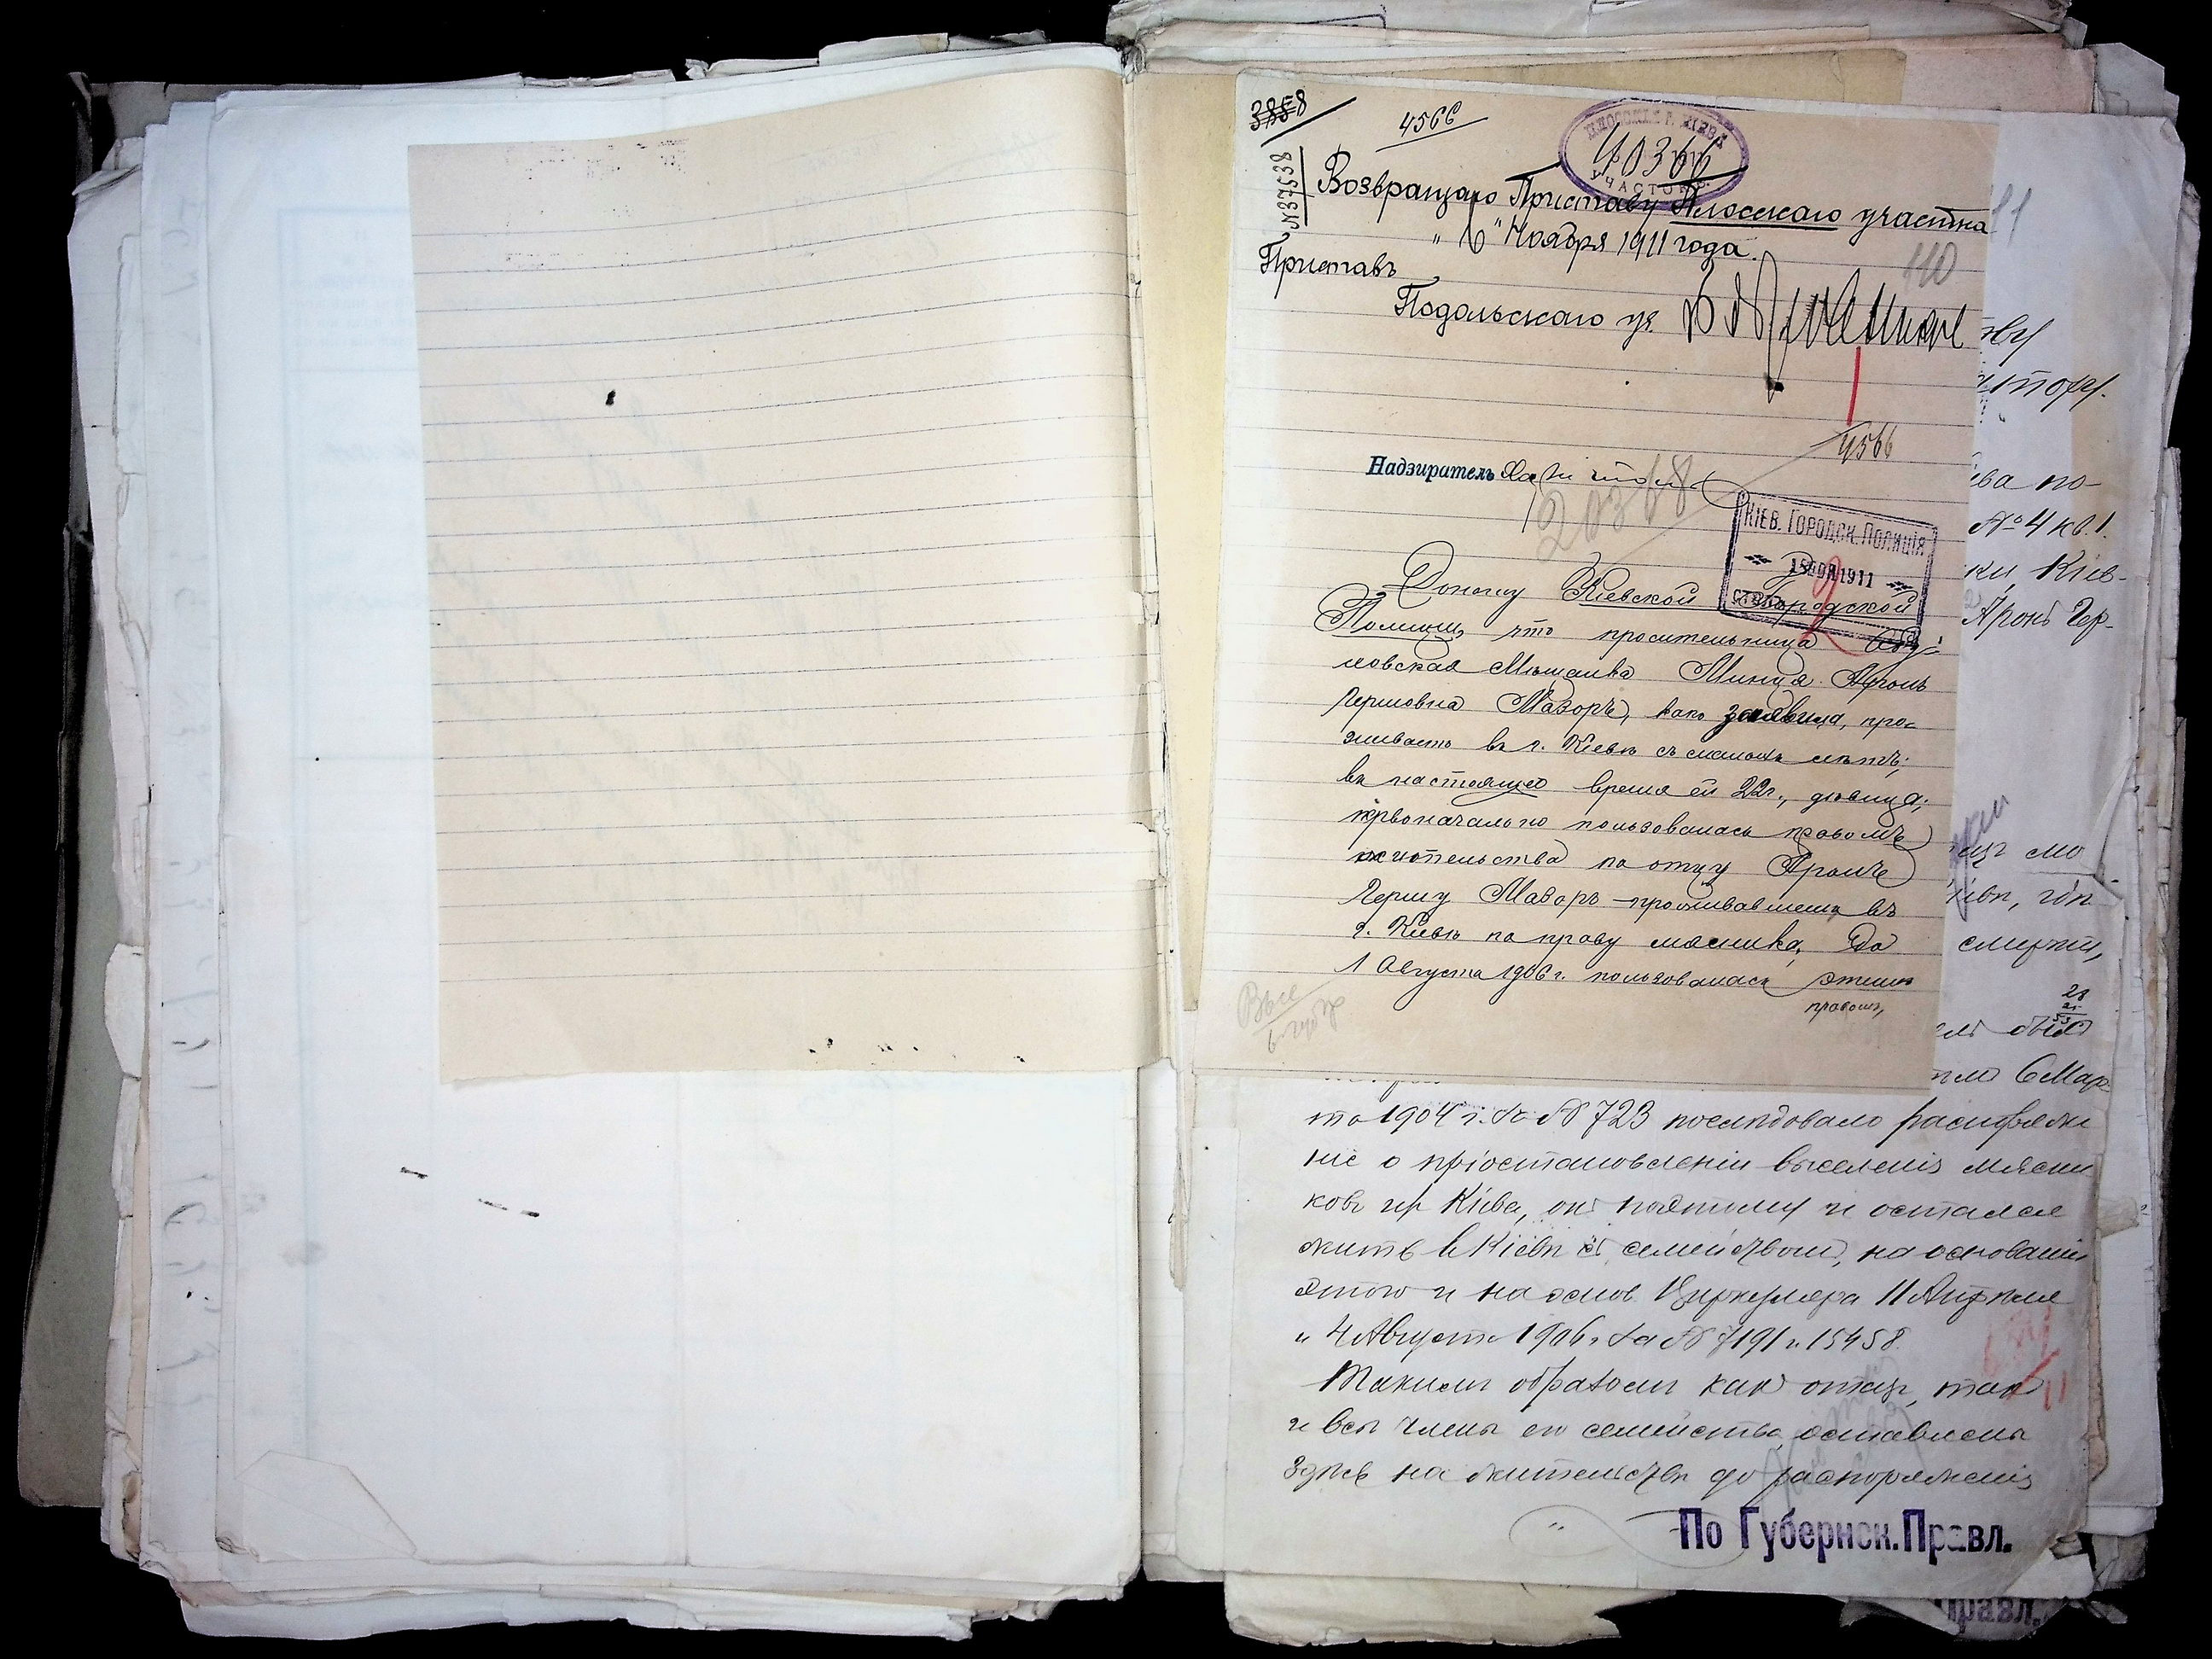 3858
4566
40366
УЧАСТОКЪ
№37538
Возвращаю Приставу Плосскаго участка
"6" Ноября 1911 года.
110
Приставъ
Подольскаго уч.
4566
Надзиратель
20368
КІЕВ. ГОРОДСК. ПОЛИЦІЯ
1911
Доношу Кіевской Городской
Полиціи, что просительница
мѣщанка Минця Аронъ
Гершовна Мазоръ, како заявила, про-
живаетъ въ г. Кіевѣ съ малыхъ лѣтъ;
въ настоящее время ей 22 г., дѣвица;
первоначально пользовалась правомъ
жительства по отцу Аронъ
Гершу Мазоръ проживавшему въ
г. Кіевѣ по праву мясника, До
1 Августа 1906 г. пользовалась этимъ
правомъ,
тору.
по-
№ 4 кв. 1.
ки, Кіев-
Аронъ Гер-
смерти,
6 Мар-
та 1904 г. за № 723 послѣдовало распоряже
ніе о пріостановленіи выселенія мясни
ковъ изъ Кіева, онъ поэтому и остался
жить въ Кіевѣ съ семействомъ, на основаніи
этого и на основ. Циркуляра 11 Апрѣля
и 4 Августа 1906 г. за № 7191 и 15458.
Такимъ образомъ какъ отецъ, такъ
и всѣ члены его семейства оставлены
здѣсь на жительствѣ до распоряженія
По Губернск. Правл.
Правл.